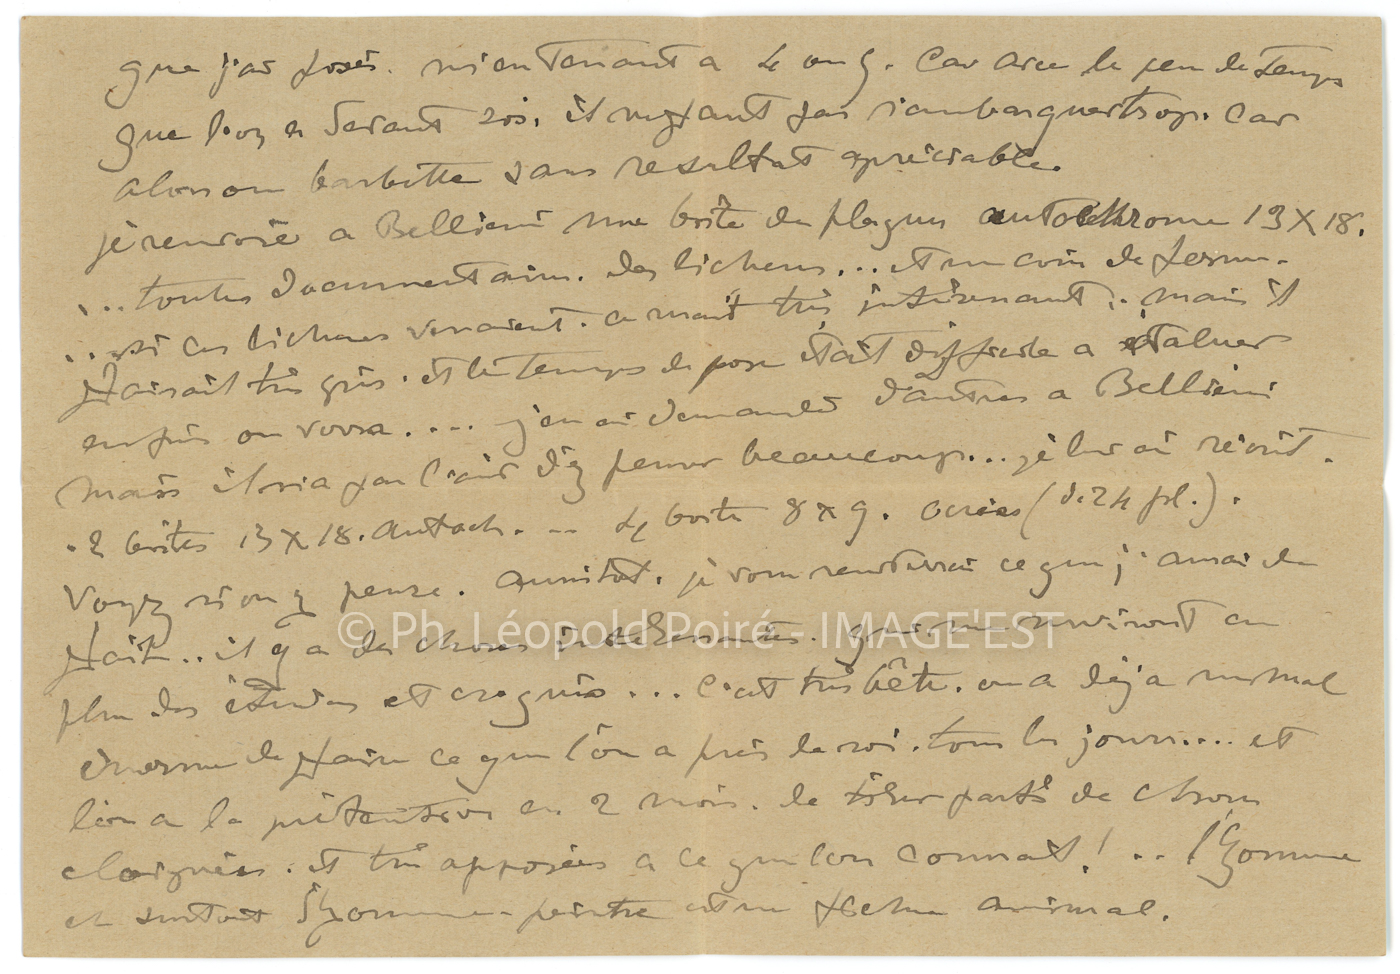 que j'ai posés. m'en tenant a 4 ou 5. Car avec le peu de temps
que l'on a devant soi. il ne faut pas s'embarquer trop. Car
alors on barbotte sans resultat apréciable.
je renvoie a Bellieni une boîte de plaques autochrome 13 X 18.
... toutes documentaires. des lichens... et un coin de ferme.
... si ces lichens venaient. ce serait très intéressant... mais il
faisait très gris. et le temps de pose était difficile a évaluer
enfin on verra.... j'en ai demandé d'autres a Bellieni
mais il n'a pas l'air d'y penser beaucoup... je lui ai réécrit.
. 2 boîtes 13 X 18. autoch. -- 4 boîte 8 x 9. (de 24 pl.).
Voyez si on y pense. aussitôt. je vous renverrai ce que j'aurai de
fait.. il y a des choses intéressantes. qui me serviront en
plus des études et croquis... C'est très bête. on a déjà un mal
énorme de faire ce que l'on a près de soi. tous les jours.... et
l'on a la prétention en 2 mois. de tirer parti de choses
eloignées. et très opposées a ce que l'on connait! .. l'homme
et surtout l'homme-peintre est un fichu animal.
© Ph. Léopold Poiré - IMAGE'EST